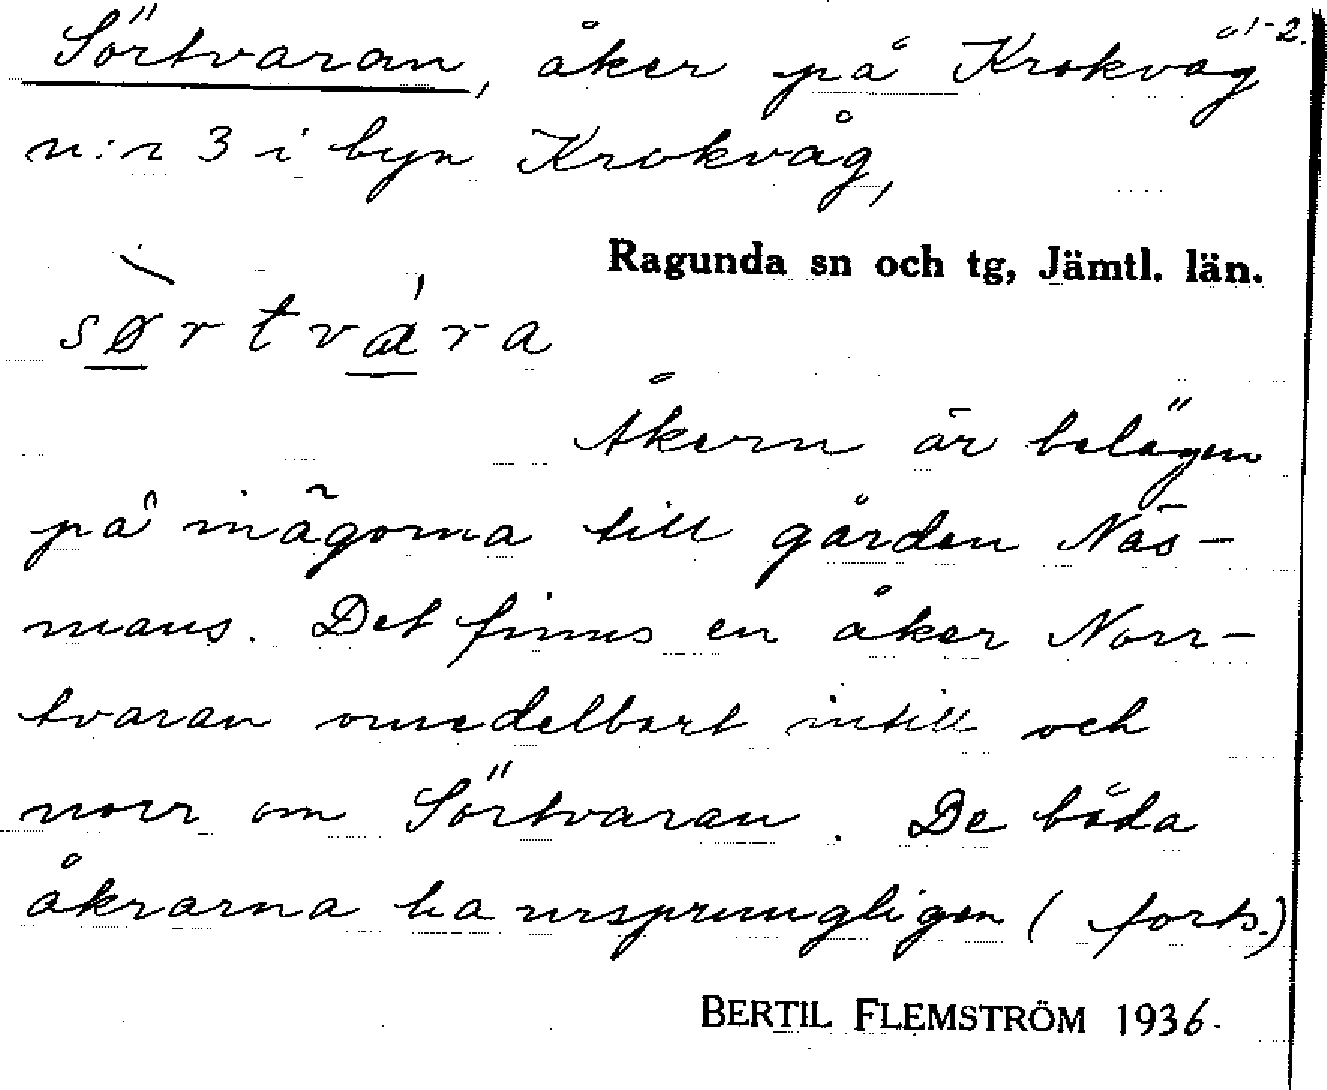 Sörtvaran, åker på Krokvåg 1-2.
n:r 3 i byn Krokvåg,
Ragunda sn och tg, Jämtl. län.
sø̀rtvára
Åkern är belägen
på inägorna till gården Näs-
mans. Det finns en åker Norr-
tvaran omedelbart intill och
norr om Sörtvaran. De båda
åkrarna ha ursprungligen (forts.)
BERTIL FLEMSTRÖM 1936.